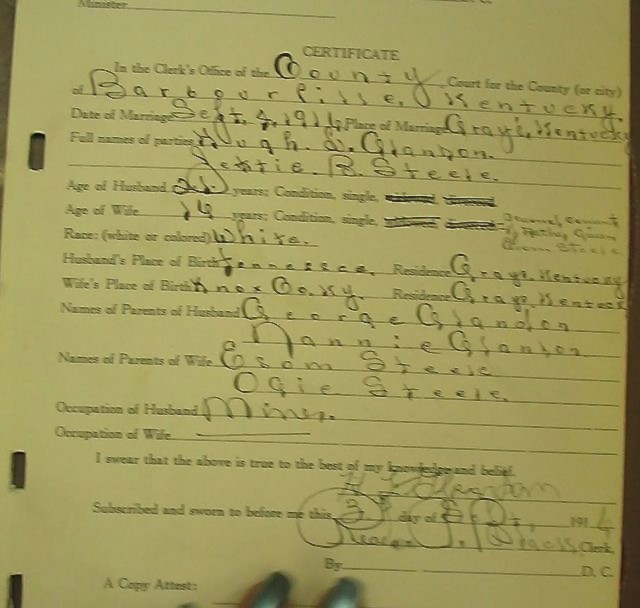 Minister
CERTIFICATE
In the Clerk's Office of the County Court for the County (or city)
of Barbourville, Kentucky.
Date of Marriage Sept. 4, 1914, Place of Marriage Grays, Kentucky
Full names of parties Hugh. L. Glandon.
B. Steele.
Age of Husband 21. years; Condition, single,
Age of Wife years; Condition, single,
Race: (white or colored) White.
Husband's Place of Birth Tennessee. Residence Grays, Kentucky
Wife's Place of Birth Knox Co. Ky. Residence Grays, Kentuck
Names of Parents of Husband George Glandon
Nannie Glandon
Names of Parents of Wife Esom Steele
Ogie Steele.
Occupation of Husband Miner.
Occupation of Wife
I swear that the above is true to the best of my knowledge and belief.
Subscribed and sworn to before me this 3 day of Sept, 1914
Clerk.
By D. C.
A Copy Attest: